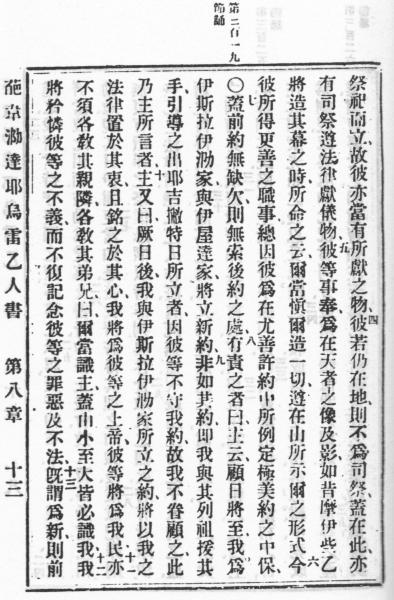 第三百一九
節誦
祭祀而立故彼亦當有所獻之物四彼若仍在地則不爲司祭蓋在此亦
有司祭遵法律獻儀物五彼等事奉爲在天者之像及影如昔摩伊些乙
將造其幕之時所命之云爾當愼爾造一切遵在山所示爾之形式六今
彼所得更善之職事總因彼爲在尤善許約中所例定極美約之中保
七〇蓋前約無缺欠則無索後約之處八有責之者曰主云顧日將至我爲
伊斯拉伊泐家與伊屋達家將立新約九非如其約即我與其列祖援其
手引導之出耶吉撇特日所立者因彼等不守我約故我不眷顧之此
乃主所言者十主又曰厥日後我與伊斯拉伊泐家所立之約將以我之
法律置於其衷且銘之於其心我將爲彼等之上帝彼等將爲我民十一亦
不須各敎其親隣各敎其弟兄曰爾當識主蓋由小至大皆必識我十二我
將矜憐彼等之不義而不復記念彼等之罪惡及不法十三旣謂爲新則前
葩韋泐達耶烏雷乙人書 第八章 十三